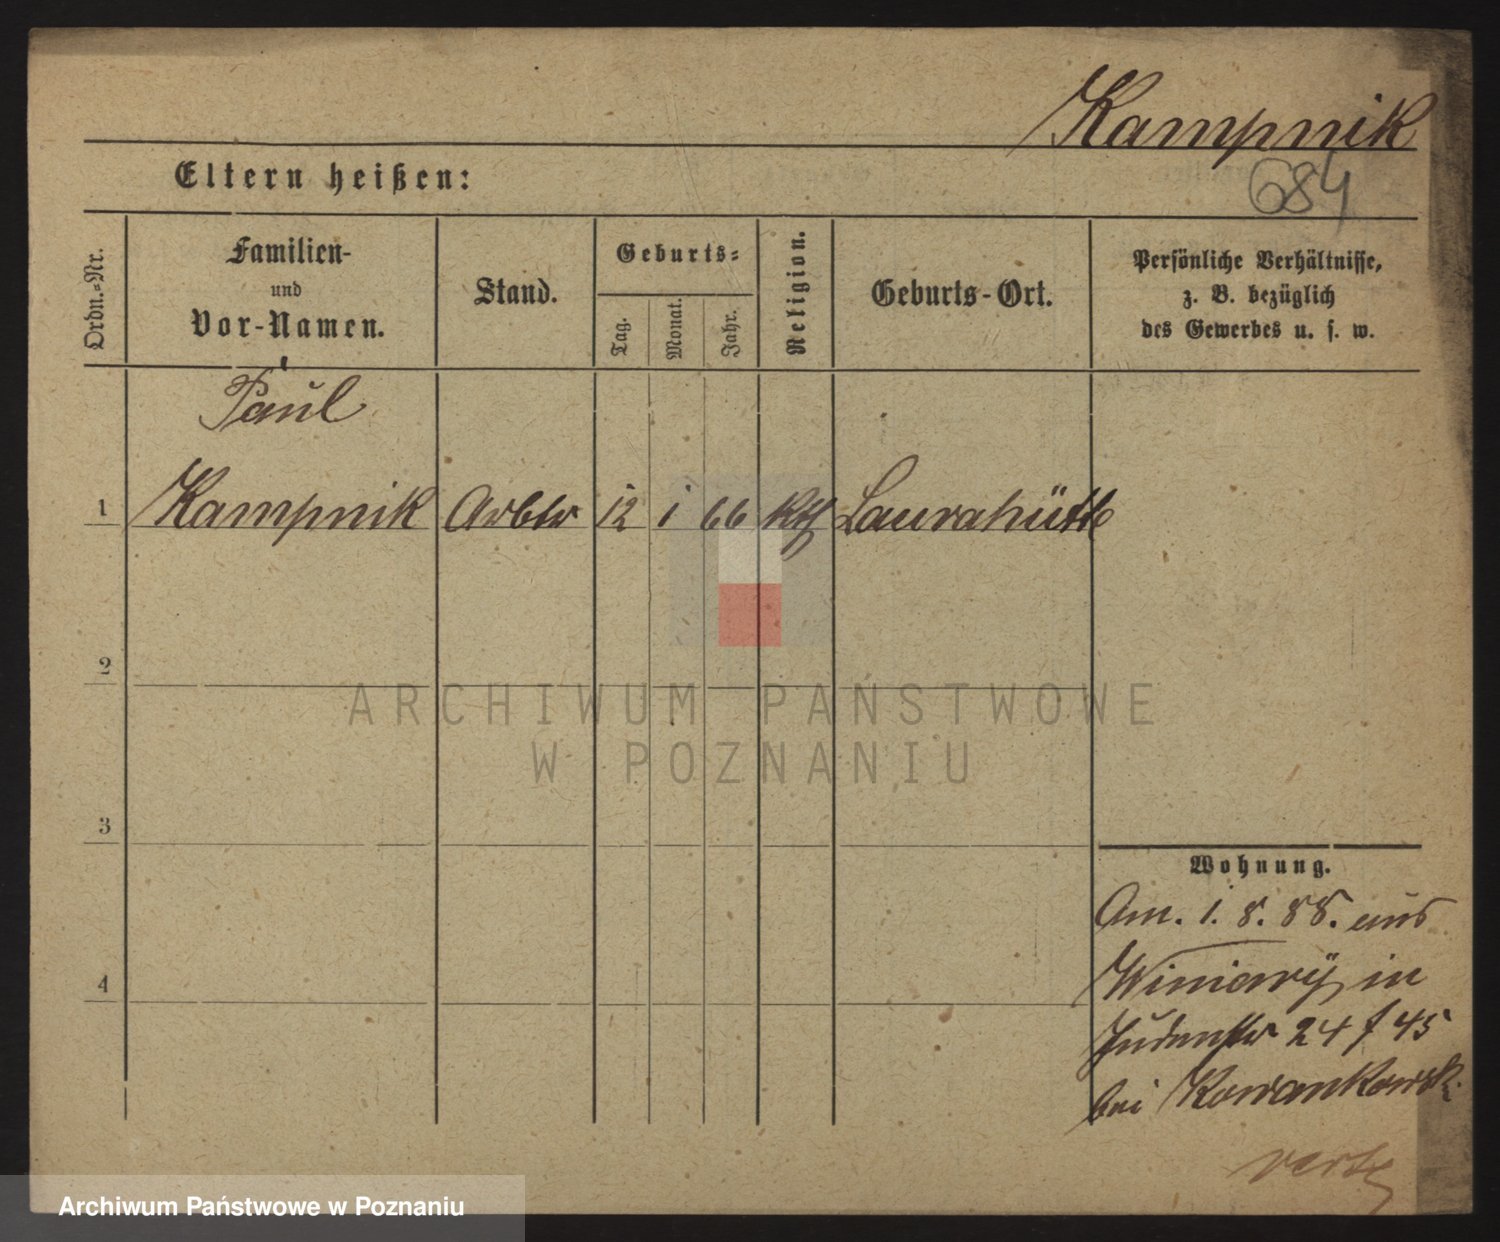 Kampnik
684
Eltern heißen:
Ordn.-Nr.
Familien-
und
Vor-Namen.
Stand.
Geburts-
Tag.
Monat.
Jahr.
Religion.
Geburts-Ort.
Persönliche Verhältnisse,
z. B. bezüglich
des Gewerbes u. s. w.
Paul
1 Kampnik Arbtr 12 1 66 Kth Laurahütte
2
3
4
Wohnung.
Am. 1. 8. 88. aus
Winiary, in
Judenstr 24 f 45
bei Kowankowsk.
ARCHIWUM PAŃSTWOWE
W POZNANIU
Archiwum Państwowe w Poznaniu